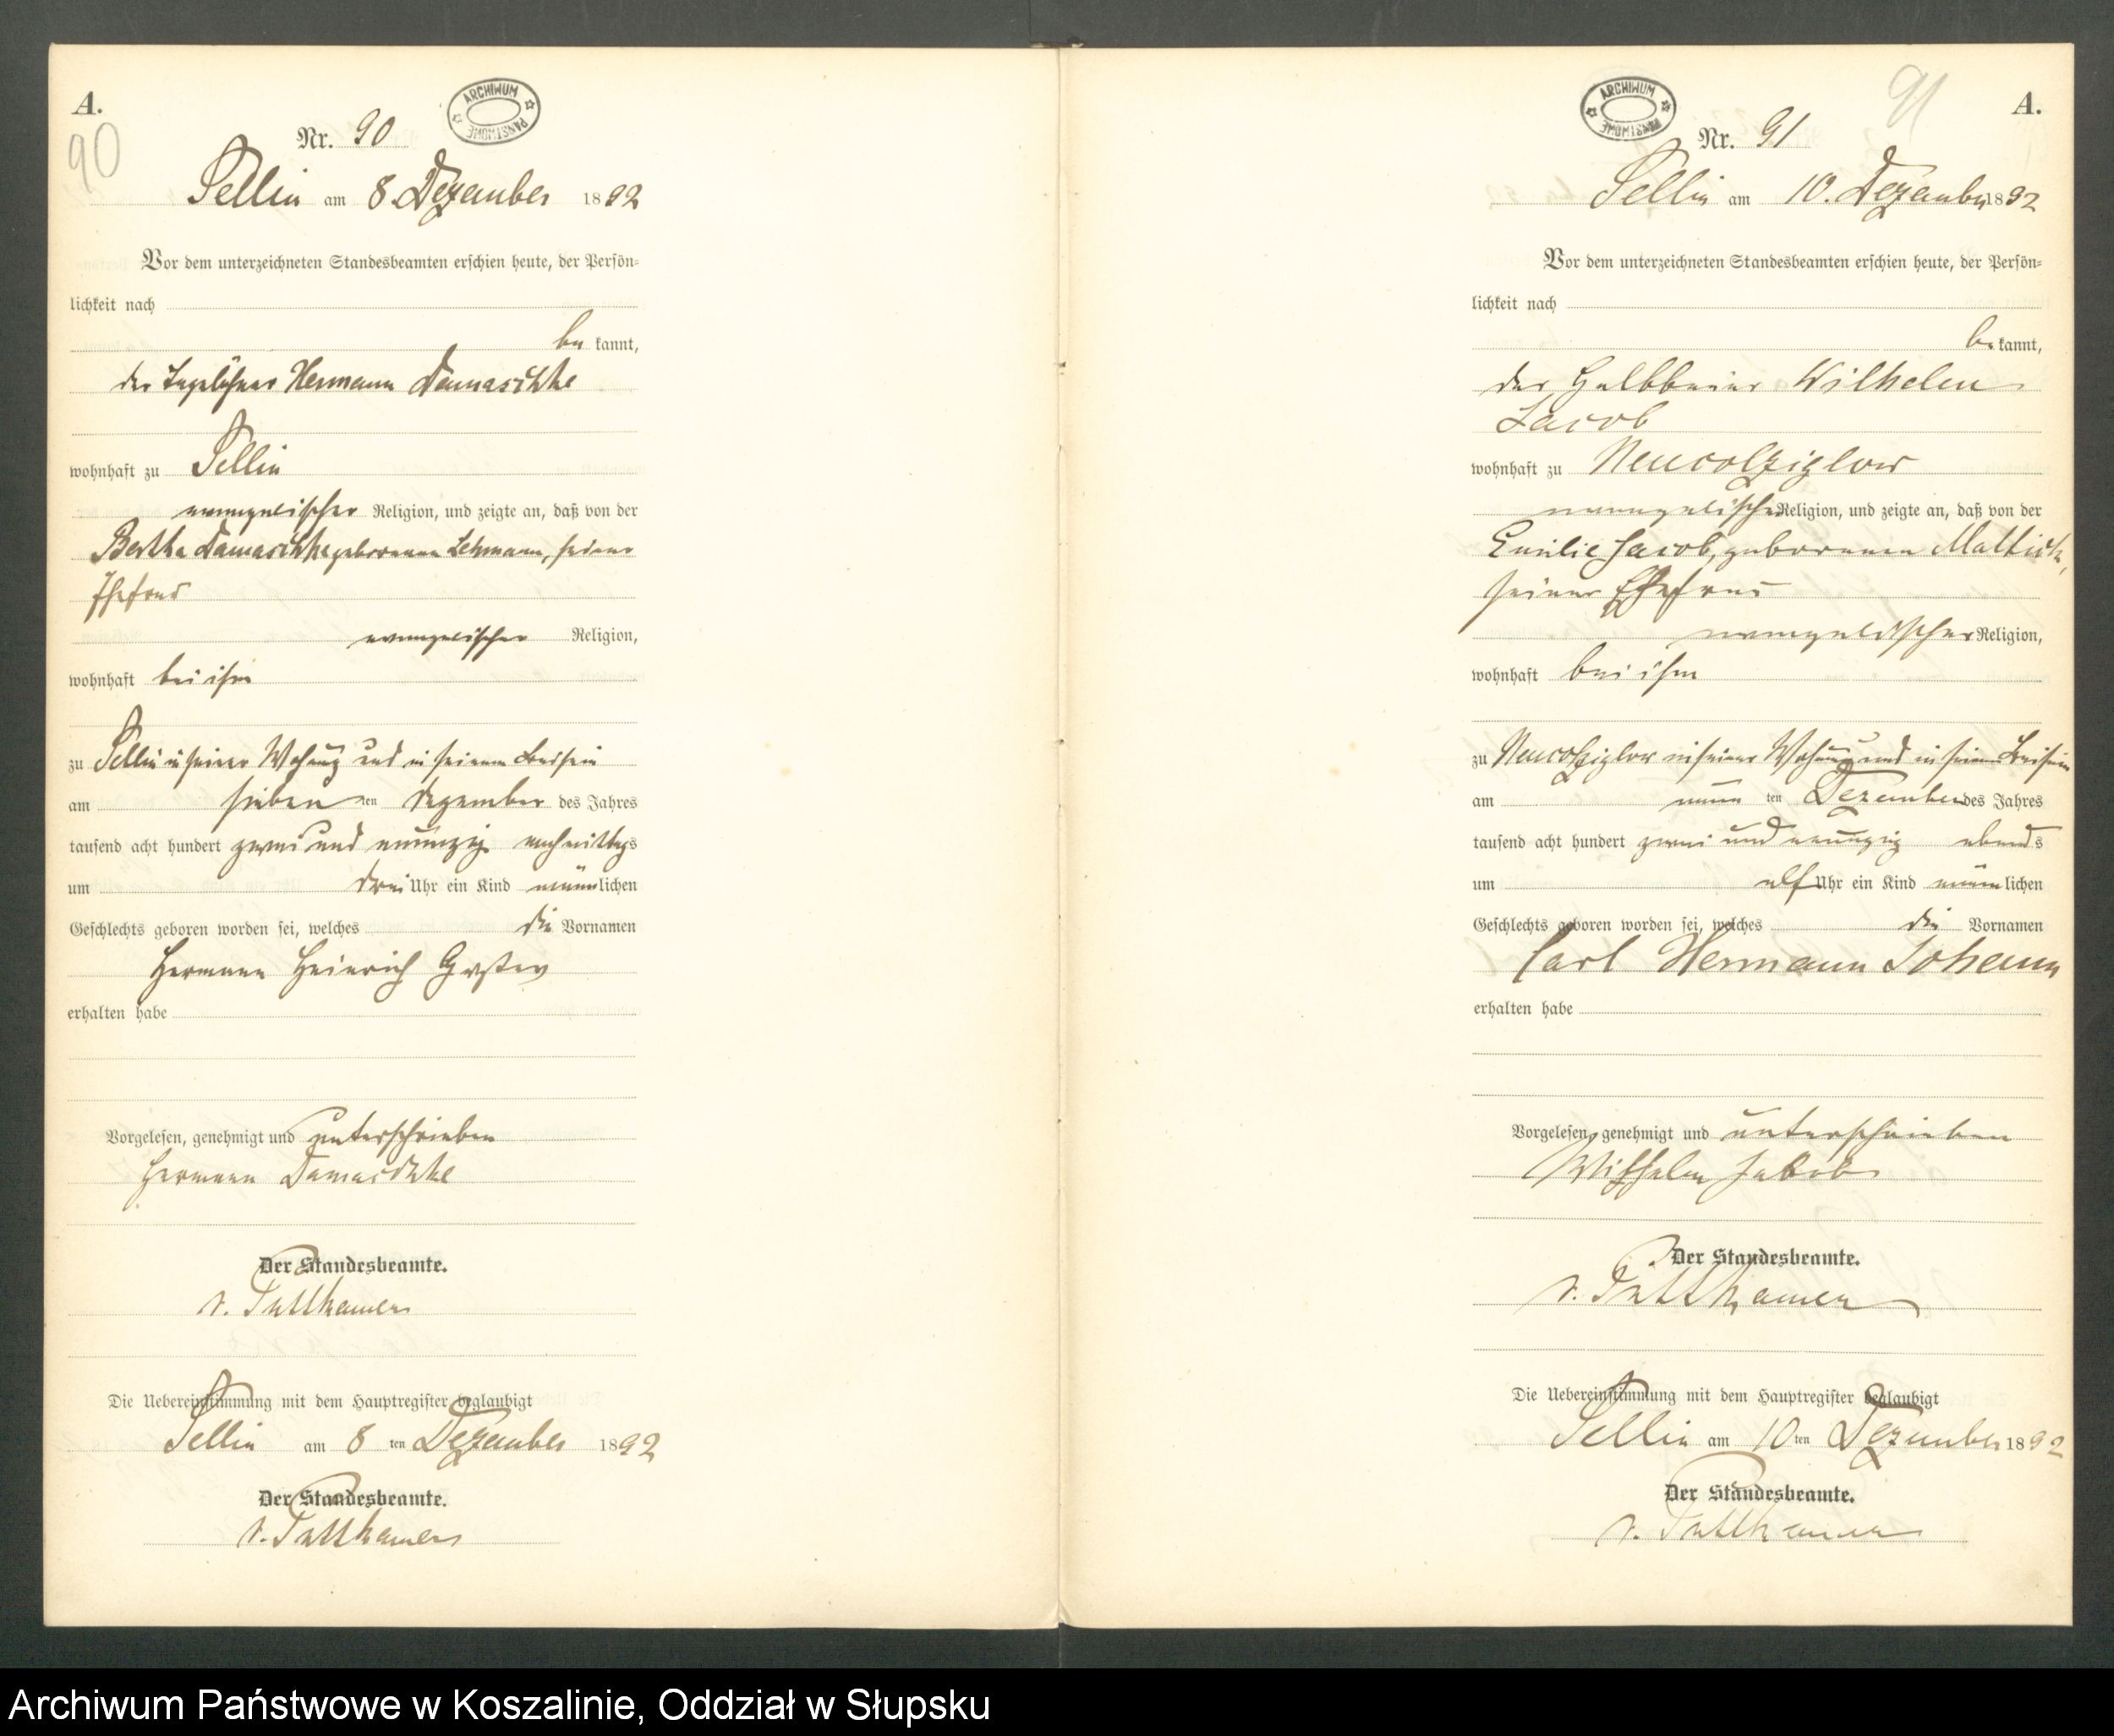 A.
90
Nr. 90
ARCHIWUM PAŃSTWOWE
Sellin am 8. Dezember 1892
Vor dem unterzeichneten Standesbeamten erschien heute, der Persön-
lichkeit nach
be kannt,
der Tagelöhner Hermann Damaschke
wohnhaft zu Sellin
evangelischer Religion, und zeigte an, daß von der
Bertha Damaschke geborenen Lehmann, seiner
Ehefrau
evangelischer Religion,
wohnhaft bei ihm
zu Sellin in seiner Wohnung und in seinem Beisein
am sieben ten Dezember des Jahres
tausend acht hundert zwei und neunzig nachmittags
um drei Uhr ein Kind männlichen
Geschlechts geboren worden sei, welches die Vornamen
Hermann Heinrich Gustav
erhalten habe
Vorgelesen, genehmigt und unterschrieben
Hermann Damaschke
Der Standesbeamte.
v. Puttkamer
Die Uebereinstimmung mit dem Hauptregister beglaubigt
Sellin am 8 ten Dezember 1892
Der Standesbeamte.
v. Puttkamer
91
A.
ARCHIWUM PAŃSTWOWE
Nr. 91
Sellin am 10. Dezember 1892
Vor dem unterzeichneten Standesbeamten erschien heute, der Persön-
lichkeit nach
be kannt,
der Halbbauer Wilhelm
Jacob
wohnhaft zu Neucolziglow
evangelischer Religion, und zeigte an, daß von der
Emilie Jacob, geborenen Mallick,
seiner Ehefrau
evangelischer Religion,
wohnhaft bei ihm
zu Neucolziglow in seiner Wohnung und in seinem Beisein
am neun ten Dezember des Jahres
tausend acht hundert zwei und neunzig abends
um elf Uhr ein Kind männlichen
Geschlechts geboren worden sei, welches die Vornamen
Carl Hermann Johann
erhalten habe
Vorgelesen, genehmigt und unterschrieben
Wilhelm Jakob
Der Standesbeamte.
v. Puttkamer
Die Uebereinstimmung mit dem Hauptregister beglaubigt
Sellin am 10 ten Dezember 1892
Der Standesbeamte.
v. Puttkamer
Archiwum Państwowe w Koszalinie, Oddział w Słupsku